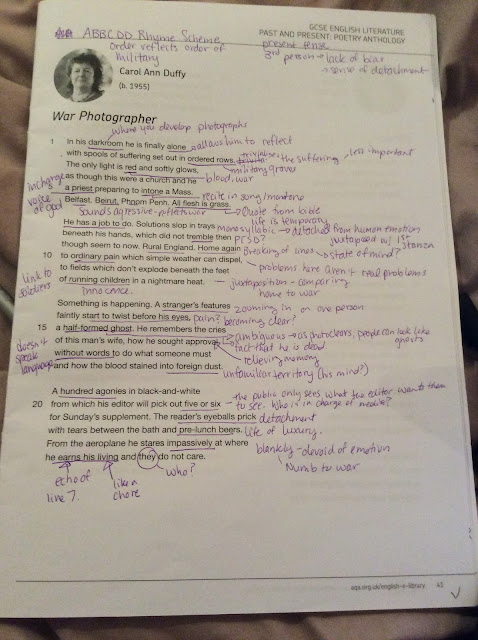 ABBCDD Rhyme Scheme
order reflects order of
military
GCSE ENGLISH LITERATURE
PAST AND PRESENT: POETRY ANTHOLOGY
present tense
3rd person → lack of bias
→ sense of detachment
Carol Ann Duffy
(b. 1955)
War Photographer
where you develop photographs
1 In his darkroom he is finally alone
allows him to reflect
with spools of suffering set out in ordered rows.
the suffering - less important
The only light is red and softly glows,
military graves
as though this were a church and he
blood, war
a priest preparing to intone a Mass.
recite in song/monotone
in charge
voice
of god
Belfast. Beirut. Phnom Penh. All flesh is grass.
Sounds aggressive - reflects war
Quote from bible
life is temporary
He has a job to do. Solutions slop in trays
monosyllabic → detached from human emotion
beneath his hands, which did not tremble then
PTSD?
juxtaposed w/ 1st
stanza
though seem to now. Rural England. Home again
Breaking of lines → state of mind?
10 to ordinary pain which simple weather can dispel,
problems here aren't real problems
to fields which don't explode beneath the feet
of running children in a nightmare heat.
juxtaposition - comparing
home to war
link to
soldiers
Innocence.
Something is happening. A stranger's features
zooming in on one person
faintly start to twist before his eyes,
pain? becoming clear?
15 a half-formed ghost. He remembers the cries
ambiguous → as photo clears, people can look like
ghosts
of this man's wife, how he sought approval
fact that he is dead
without words to do what someone must
relieving memory
doesn't
speak
language
and how the blood stained into foreign dust.
unfamiliar territory (his mind?)
A hundred agonies in black-and-white
20 from which his editor will pick out five or six
the public only sees what the editor wants them
to see. Who is in charge of media?
for Sunday's supplement. The reader's eyeballs prick
detachment
with tears between the bath and pre-lunch beers.
life of luxury.
From the aeroplane he stares impassively at where
blankly - devoid of emotion
Numb to war
he earns his living and they do not care.
echo of
line 7.
like a
chore
who?
aqa.org.uk/english-e-library
41